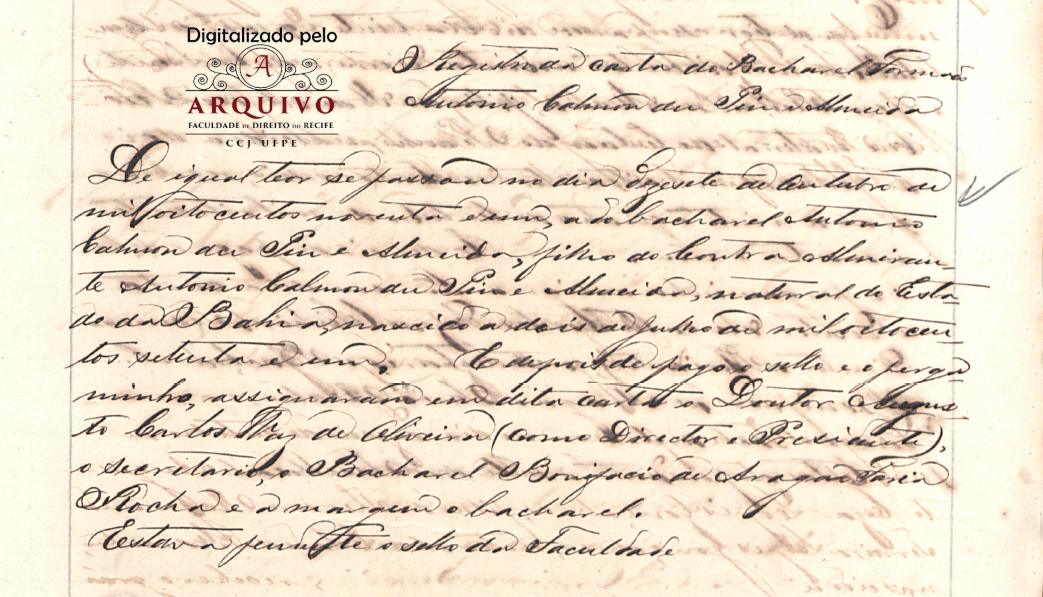 Digitalizado pelo
A
ARQUIVO
FACULDADE DE DIREITO DO RECIFE
CCJ-UFPE
Registro da carta do Bacharel Formado
Antonio Calmon du Pin e Almeida
De igual teor se passou no dia dezesete de Outubro de
mil oito centos noventa e um, a do bacharel Antonio
Calmon du Pin e Almeida, filho do Contra Almiran-
te Antonio Calmon du Pin e Almeida, natural do Esta-
do da Bahia, nascido a dois de Julho de mil oito cen-
tos setenta e um. E depois de pago o sello e o perga
minho, assignaram em dita carta o Doutor Augus-
to Carlos Vaz de Oliveira (como Director e Presidente),
o secretario, o Bacharel Bonifacio de Aragão Faria
Rocha e a margem o bacharel.
Estava pendente o sello da Faculdade